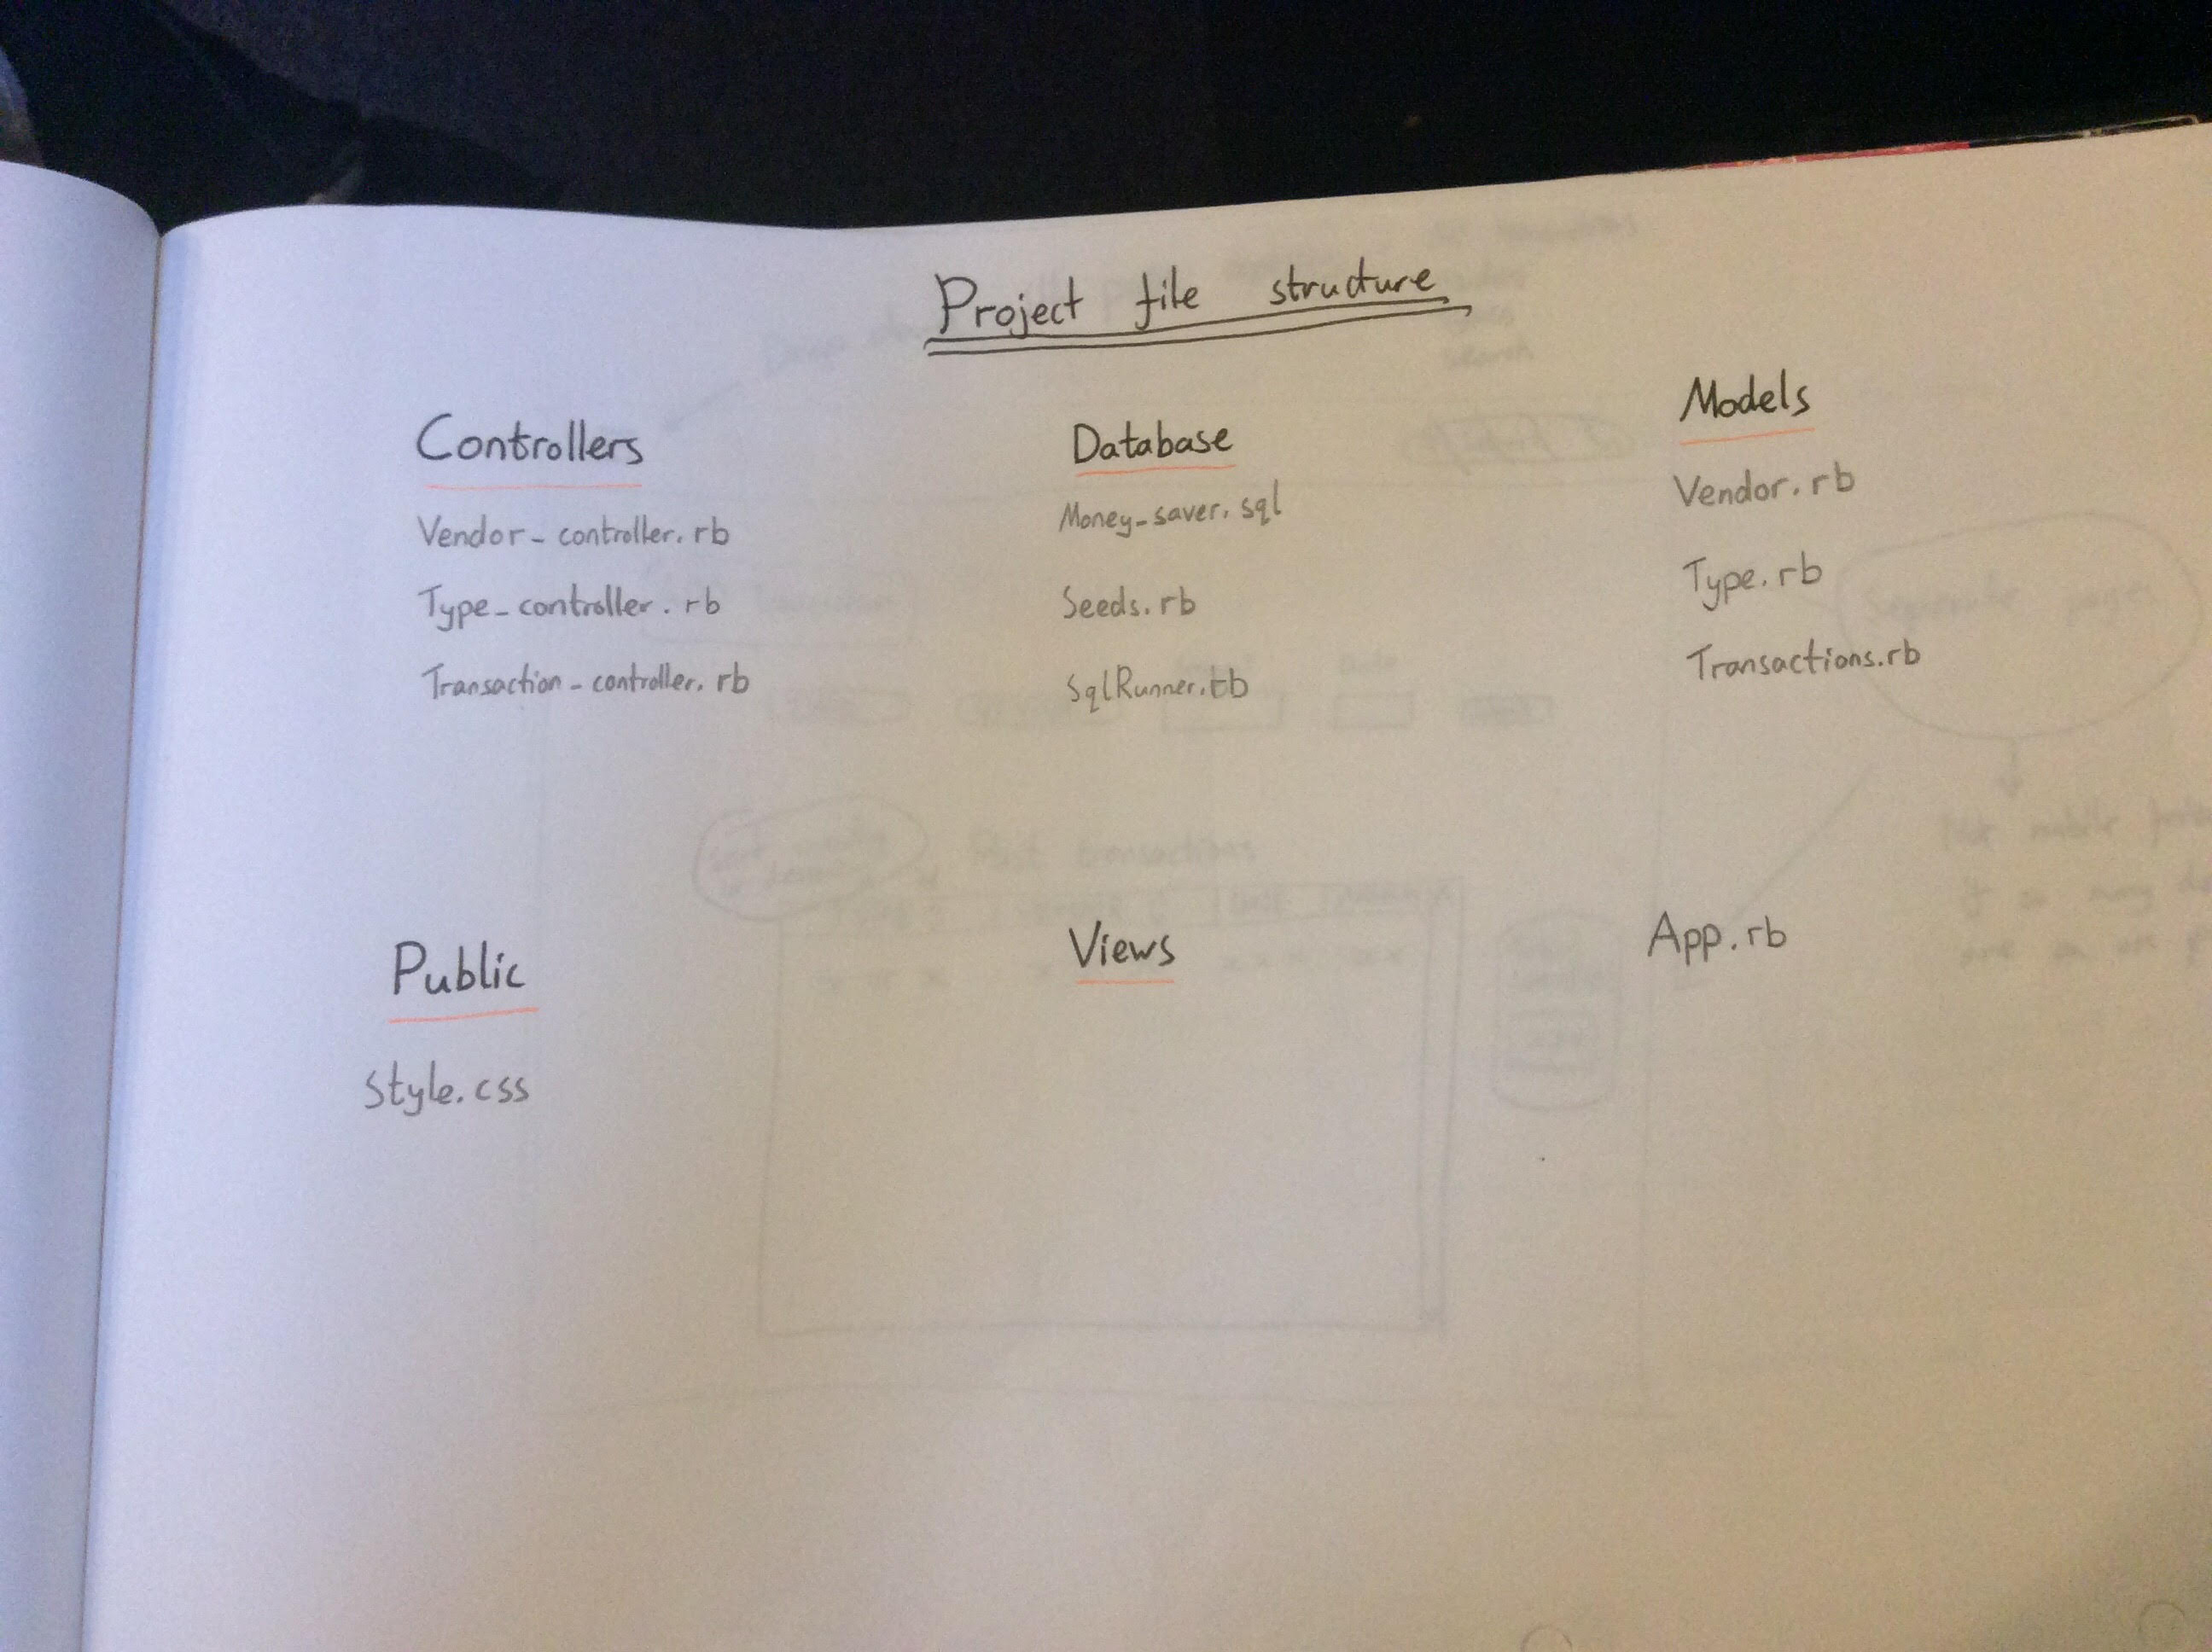 Project file structure
Controllers
Vendor_controller.rb
Type_controller.rb
Transaction_controller.rb
Database
Money_saver.sql
Seeds.rb
SqlRunner.rb
Models
Vendor.rb
Type.rb
Transactions.rb
Public
Style.css
Views
App.rb
Separate page
Past transactions
search